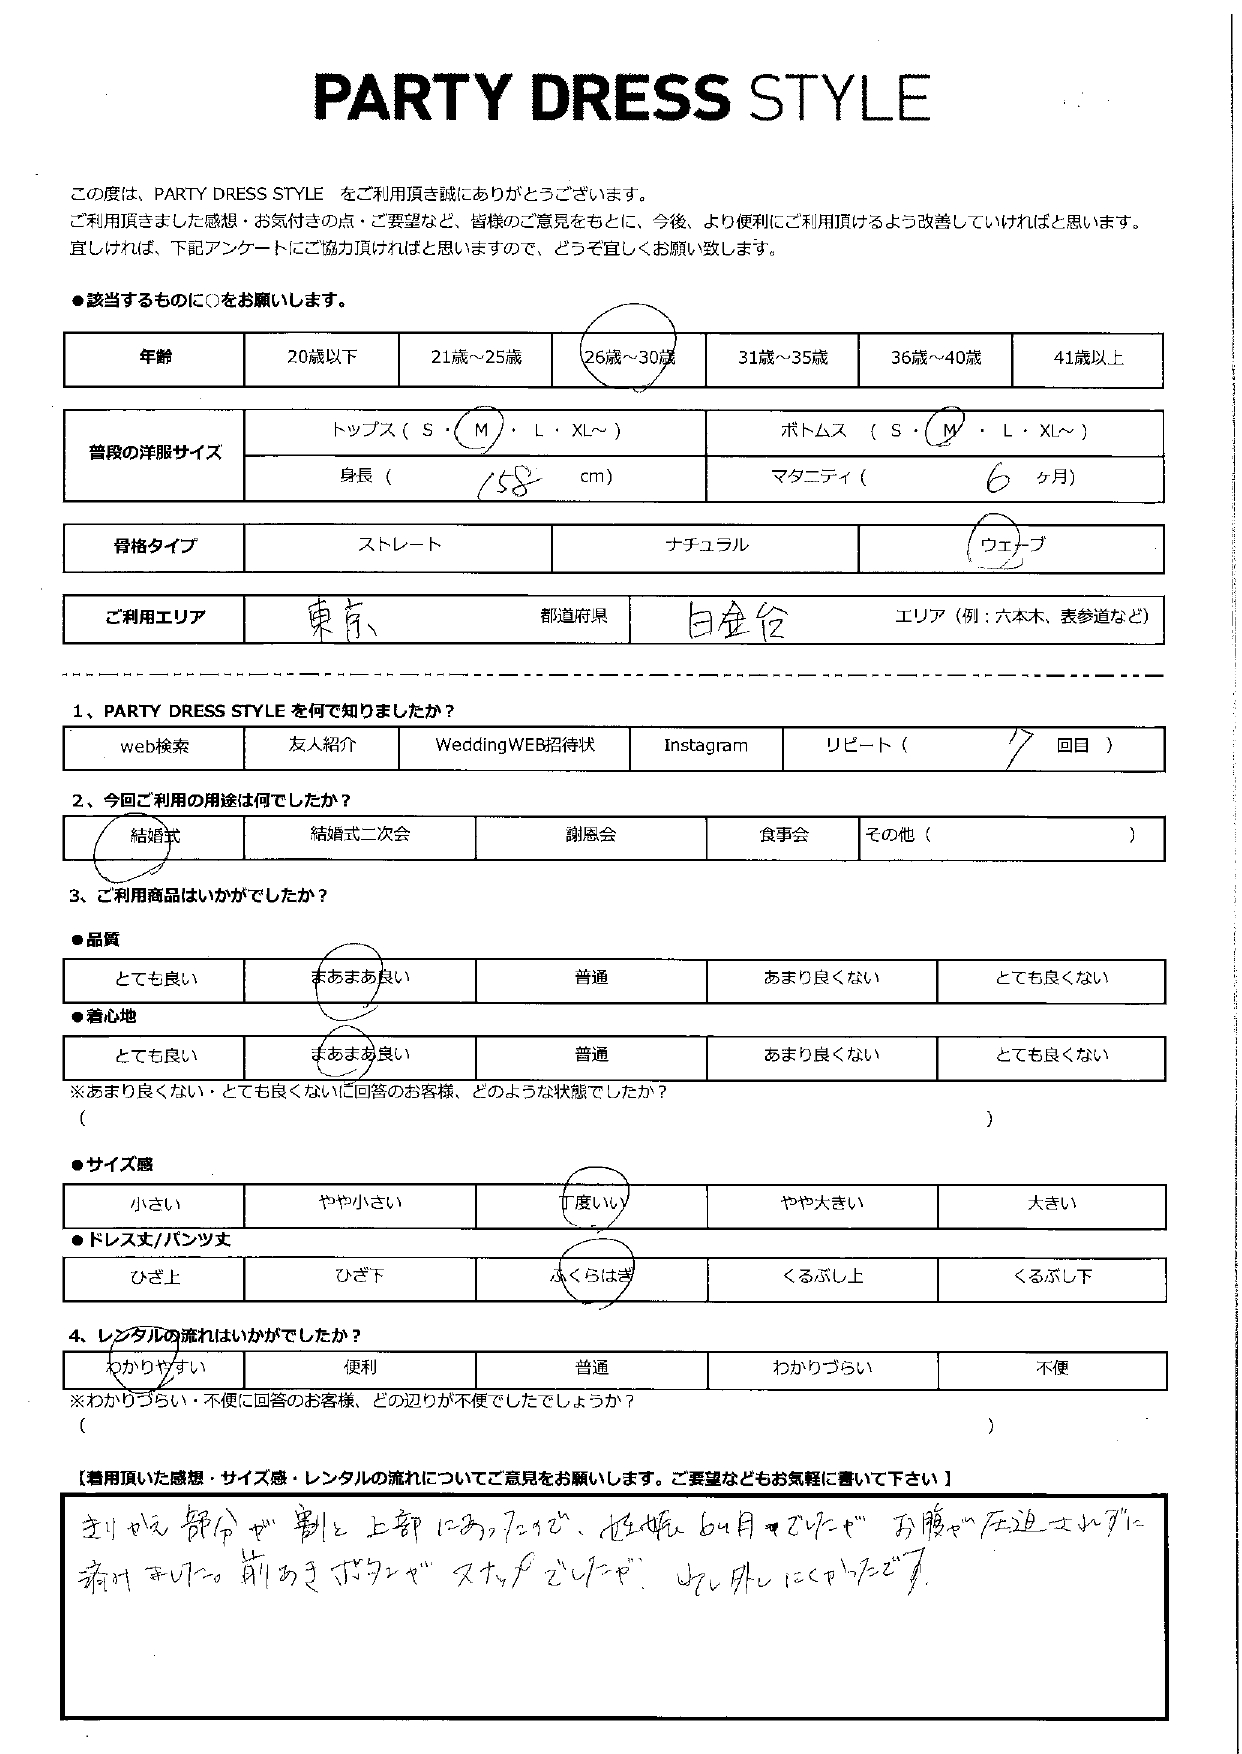 PARTY DRESS STYLE
この度は、PARTY DRESS STYLE をご利用頂き誠にありがとうございます。
ご利用頂きました感想・お気付きの点・ご要望など、皆様のご意見をもとに、今後、より便利にご利用頂けるよう改善していければと思います。
宜しければ、下記アンケートにご協力頂ければと思いますので、どうぞ宜しくお願い致します。
●該当するものに○をお願いします。
年齢 20歳以下 21歳～25歳 26歳～30歳 31歳～35歳 36歳～40歳 41歳以上
普段の洋服サイズ トップス ( S ・ M ・ L ・ XL～ ) ボトムス ( S ・ M ・ L ・ XL～ )
身長 ( 158 cm) マタニティ ( 6 ヶ月)
骨格タイプ ストレート ナチュラル ウェーブ
ご利用エリア 東京 都道府県 白金台 エリア（例：六本木、表参道など）
1、PARTY DRESS STYLE を何で知りましたか？
web検索 友人紹介 WeddingWEB招待状 Instagram リピート ( 7 回目 )
2、今回ご利用の用途は何でしたか？
結婚式 結婚式二次会 謝恩会 食事会 その他 ( )
3、ご利用商品はいかがでしたか？
●品質
とても良い まあまあ良い 普通 あまり良くない とても良くない
●着心地
とても良い まあまあ良い 普通 あまり良くない とても良くない
※あまり良くない・とても良くないに回答のお客様、どのような状態でしたか？
( )
●サイズ感
小さい やや小さい 丁度いい やや大きい 大きい
●ドレス丈/パンツ丈
ひざ上 ひざ下 ふくらはぎ くるぶし上 くるぶし下
4、レンタルの流れはいかがでしたか？
わかりやすい 便利 普通 わかりづらい 不便
※わかりづらい・不便に回答のお客様、どの辺りが不便でしたでしょうか？
( )
【着用頂いた感想・サイズ感・レンタルの流れについてご意見をお願いします。ご要望などもお気軽に書いて下さい 】
きりかえ部分が割と上部にあったので、妊娠6ヶ月でしたがお腹が圧迫されずに
済みました。前あきボタンがスナップでしたが、少し外しにくかったです。